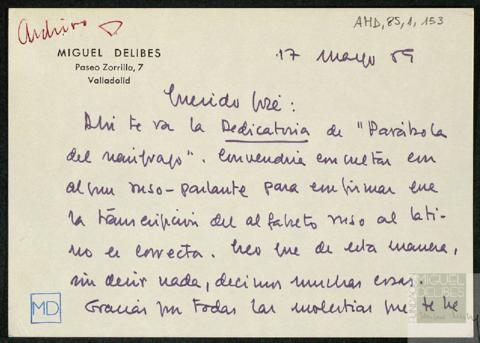 Archivo
AMD, 85, 1, 153
MIGUEL DELIBES
Paseo Zorrilla, 7
Valladolid
17 marzo 69
Querido José:
Ahí te va la Dedicatoria de "Parábola
del náufrago". Convendría consultar con
algún ruso-parlante para confirmar que
la transcripción del alfabeto ruso al lati-
no es correcta. Creo que de esta manera,
sin decir nada, decimos muchas cosas.
Gracias por todas las molestias que te he
MD
MIGUEL
DELIBES